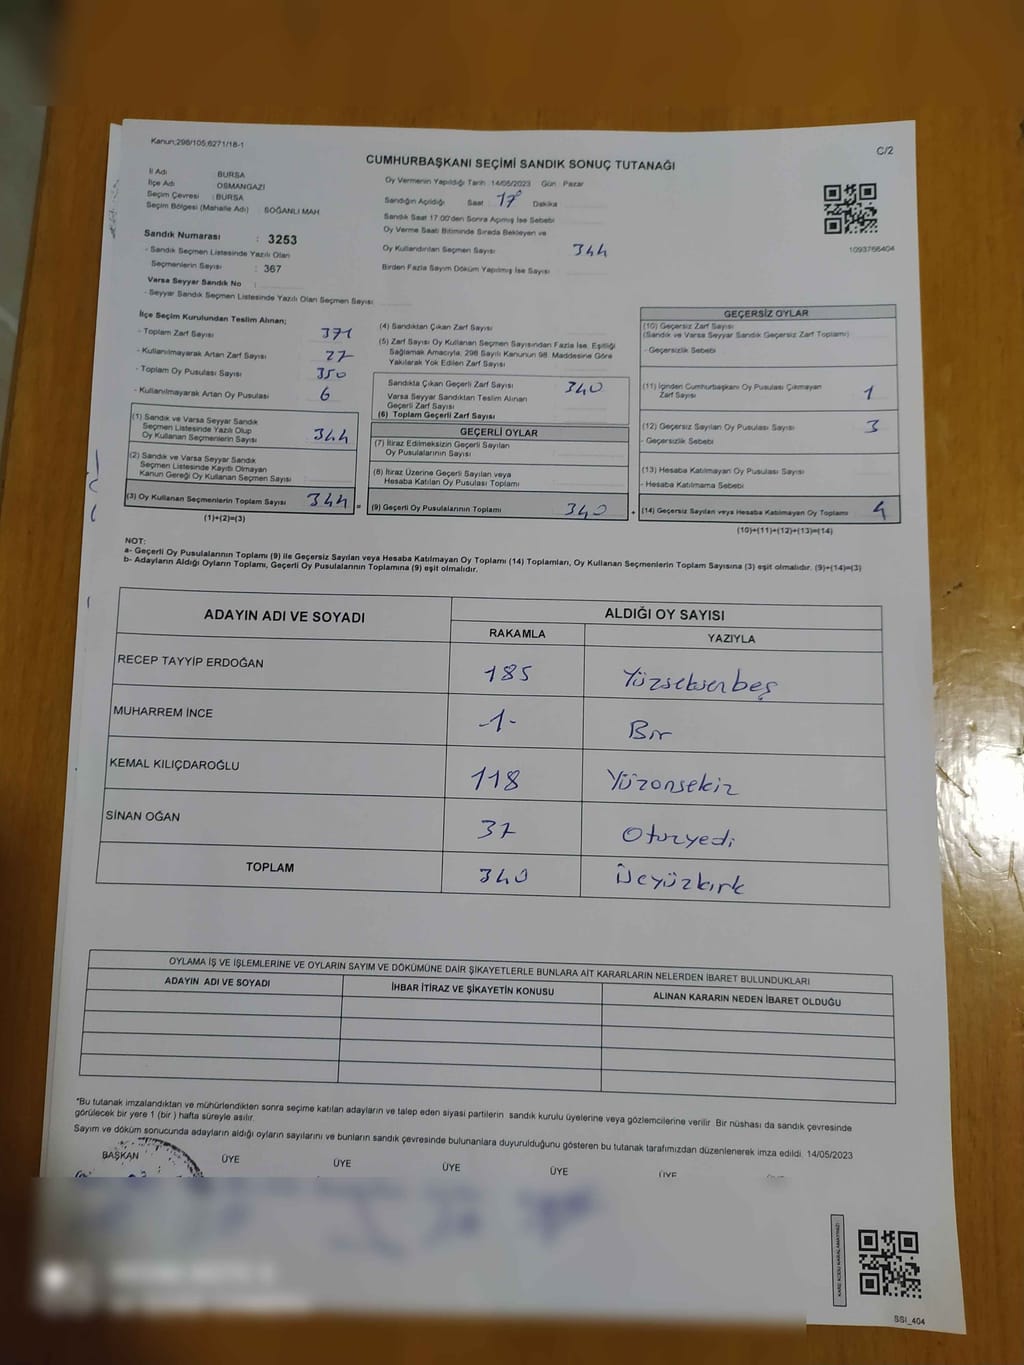 Kanun;298/105;6271/18-1
C/2
CUMHURBAŞKANI SEÇİMİ SANDIK SONUÇ TUTANAĞI
İl Adı BURSA
İlçe Adı OSMANGAZİ
Seçim Çevresi : BURSA
Seçim Bölgesi (Mahalle Adı) : SOĞANLI MAH
Sandık Numarası : 3253
- Sandık Seçmen Listesinde Yazılı Olan
Seçmenlerin Sayısı : 367
Varsa Seyyar Sandık No :
- Seyyar Sandık Seçmen Listesinde Yazılı Olan Seçmen Sayısı
Oy Vermenin Yapıldığı Tarih : 14/05/2023 Gün : Pazar
Sandığın Açıldığı Saat : 17 Dakika
Sandık Saat 17.00'den Sonra Açılmış İse Sebebi
Oy Verme Saati Bitiminde Sırada Bekleyen ve
Oy Kullandırılan Seçmen Sayısı 344
Birden Fazla Sayım Döküm Yapılmış İse Sayısı
1093766404
İlçe Seçim Kurulundan Teslim Alınan;
- Toplam Zarf Sayısı 371
- Kullanılmayarak Artan Zarf Sayısı 27
- Toplam Oy Pusulası Sayısı 350
- Kullanılmayarak Artan Oy Pusulası 6
(1) Sandık ve Varsa Seyyar Sandık
Seçmen Listesinde Yazılı Olup
Oy Kullanan Seçmenlerin Sayısı 344
(2) Sandık ve Varsa Seyyar Sandık
Seçmen Listesinde Kayıtlı Olmayan
Kanun Gereği Oy Kullanan Seçmen Sayısı
(3) Oy Kullanan Seçmenlerin Toplam Sayısı 344
(1)+(2)=(3)
(4) Sandıktan Çıkan Zarf Sayısı
(5) Zarf Sayısı Oy Kullanan Seçmen Sayısından Fazla İse, Eşitliği
Sağlamak Amacıyla, 298 Sayılı Kanunun 98. Maddesine Göre
Yakılarak Yok Edilen Zarf Sayısı
Sandıkta Çıkan Geçerli Zarf Sayısı 340
Varsa Seyyar Sandıktan Teslim Alınan
Geçerli Zarf Sayısı
(6) Toplam Geçerli Zarf Sayısı
GEÇERLİ OYLAR
(7) İtiraz Edilmeksizin Geçerli Sayılan
Oy Pusulalarının Sayısı
(8) İtiraz Üzerine Geçerli Sayılan veya
Hesaba Katılan Oy Pusulası Toplamı
= (9) Geçerli Oy Pusulalarının Toplamı 340 +
GEÇERSİZ OYLAR
(10) Geçersiz Zarf Sayısı
(Sandık ve Varsa Seyyar Sandık Geçersiz Zarf Toplamı)
- Geçersizlik Sebebi
(11) İçinden Cumhurbaşkanı Oy Pusulası Çıkmayan
Zarf Sayısı 1
(12) Geçersiz Sayılan Oy Pusulası Sayısı 3
- Geçersizlik Sebebi
(13) Hesaba Katılmayan Oy Pusulası Sayısı
- Hesaba Katılmama Sebebi
(14) Geçersiz Sayılan veya Hesaba Katılmayan Oy Toplamı 4
(10)+(11)+(12)+(13)=(14)
NOT:
a- Geçerli Oy Pusulalarının Toplamı (9) ile Geçersiz Sayılan veya Hesaba Katılmayan Oy Toplamı (14) Toplamları, Oy Kullanan Seçmenlerin Toplam Sayısına (3) eşit olmalıdır. (9)+(14)=(3)
b- Adayların Aldığı Oyların Toplamı, Geçerli Oy Pusulalarının Toplamına (9) eşit olmalıdır.
ADAYIN ADI VE SOYADI ALDIĞI OY SAYISI
RAKAMLA YAZIYLA
RECEP TAYYİP ERDOĞAN 185 Yüzseksenbeş
MUHARREM İNCE -1- Bir
KEMAL KILIÇDAROĞLU 118 Yüzonsekiz
SİNAN OĞAN 37 Otuzyedi
TOPLAM 340 Üçyüzkırk
OYLAMA İŞ VE İŞLEMLERİNE VE OYLARIN SAYIM VE DÖKÜMÜNE DAİR ŞİKAYETLERLE BUNLARA AİT KARARLARIN NELERDEN İBARET BULUNDUKLARI
ADAYIN ADI VE SOYADI İHBAR İTİRAZ VE ŞİKAYETİN KONUSU ALINAN KARARIN NEDEN İBARET OLDUĞU
*Bu tutanak imzalandıktan ve mühürlendikten sonra seçime katılan adayların ve talep eden siyasi partilerin sandık kurulu üyelerine veya gözlemcilerine verilir. Bir nüshası da sandık çevresinde
görülecek bir yere 1 (bir ) hafta süreyle asılır.
Sayım ve döküm sonucunda adayların aldığı oyların sayılarını ve bunların sandık çevresinde bulunanlara duyurulduğunu gösteren bu tutanak tarafımızdan düzenlenerek imza edildi. 14/05/2023
BAŞKAN ÜYE ÜYE ÜYE ÜYE ÜYE
SSİ_404